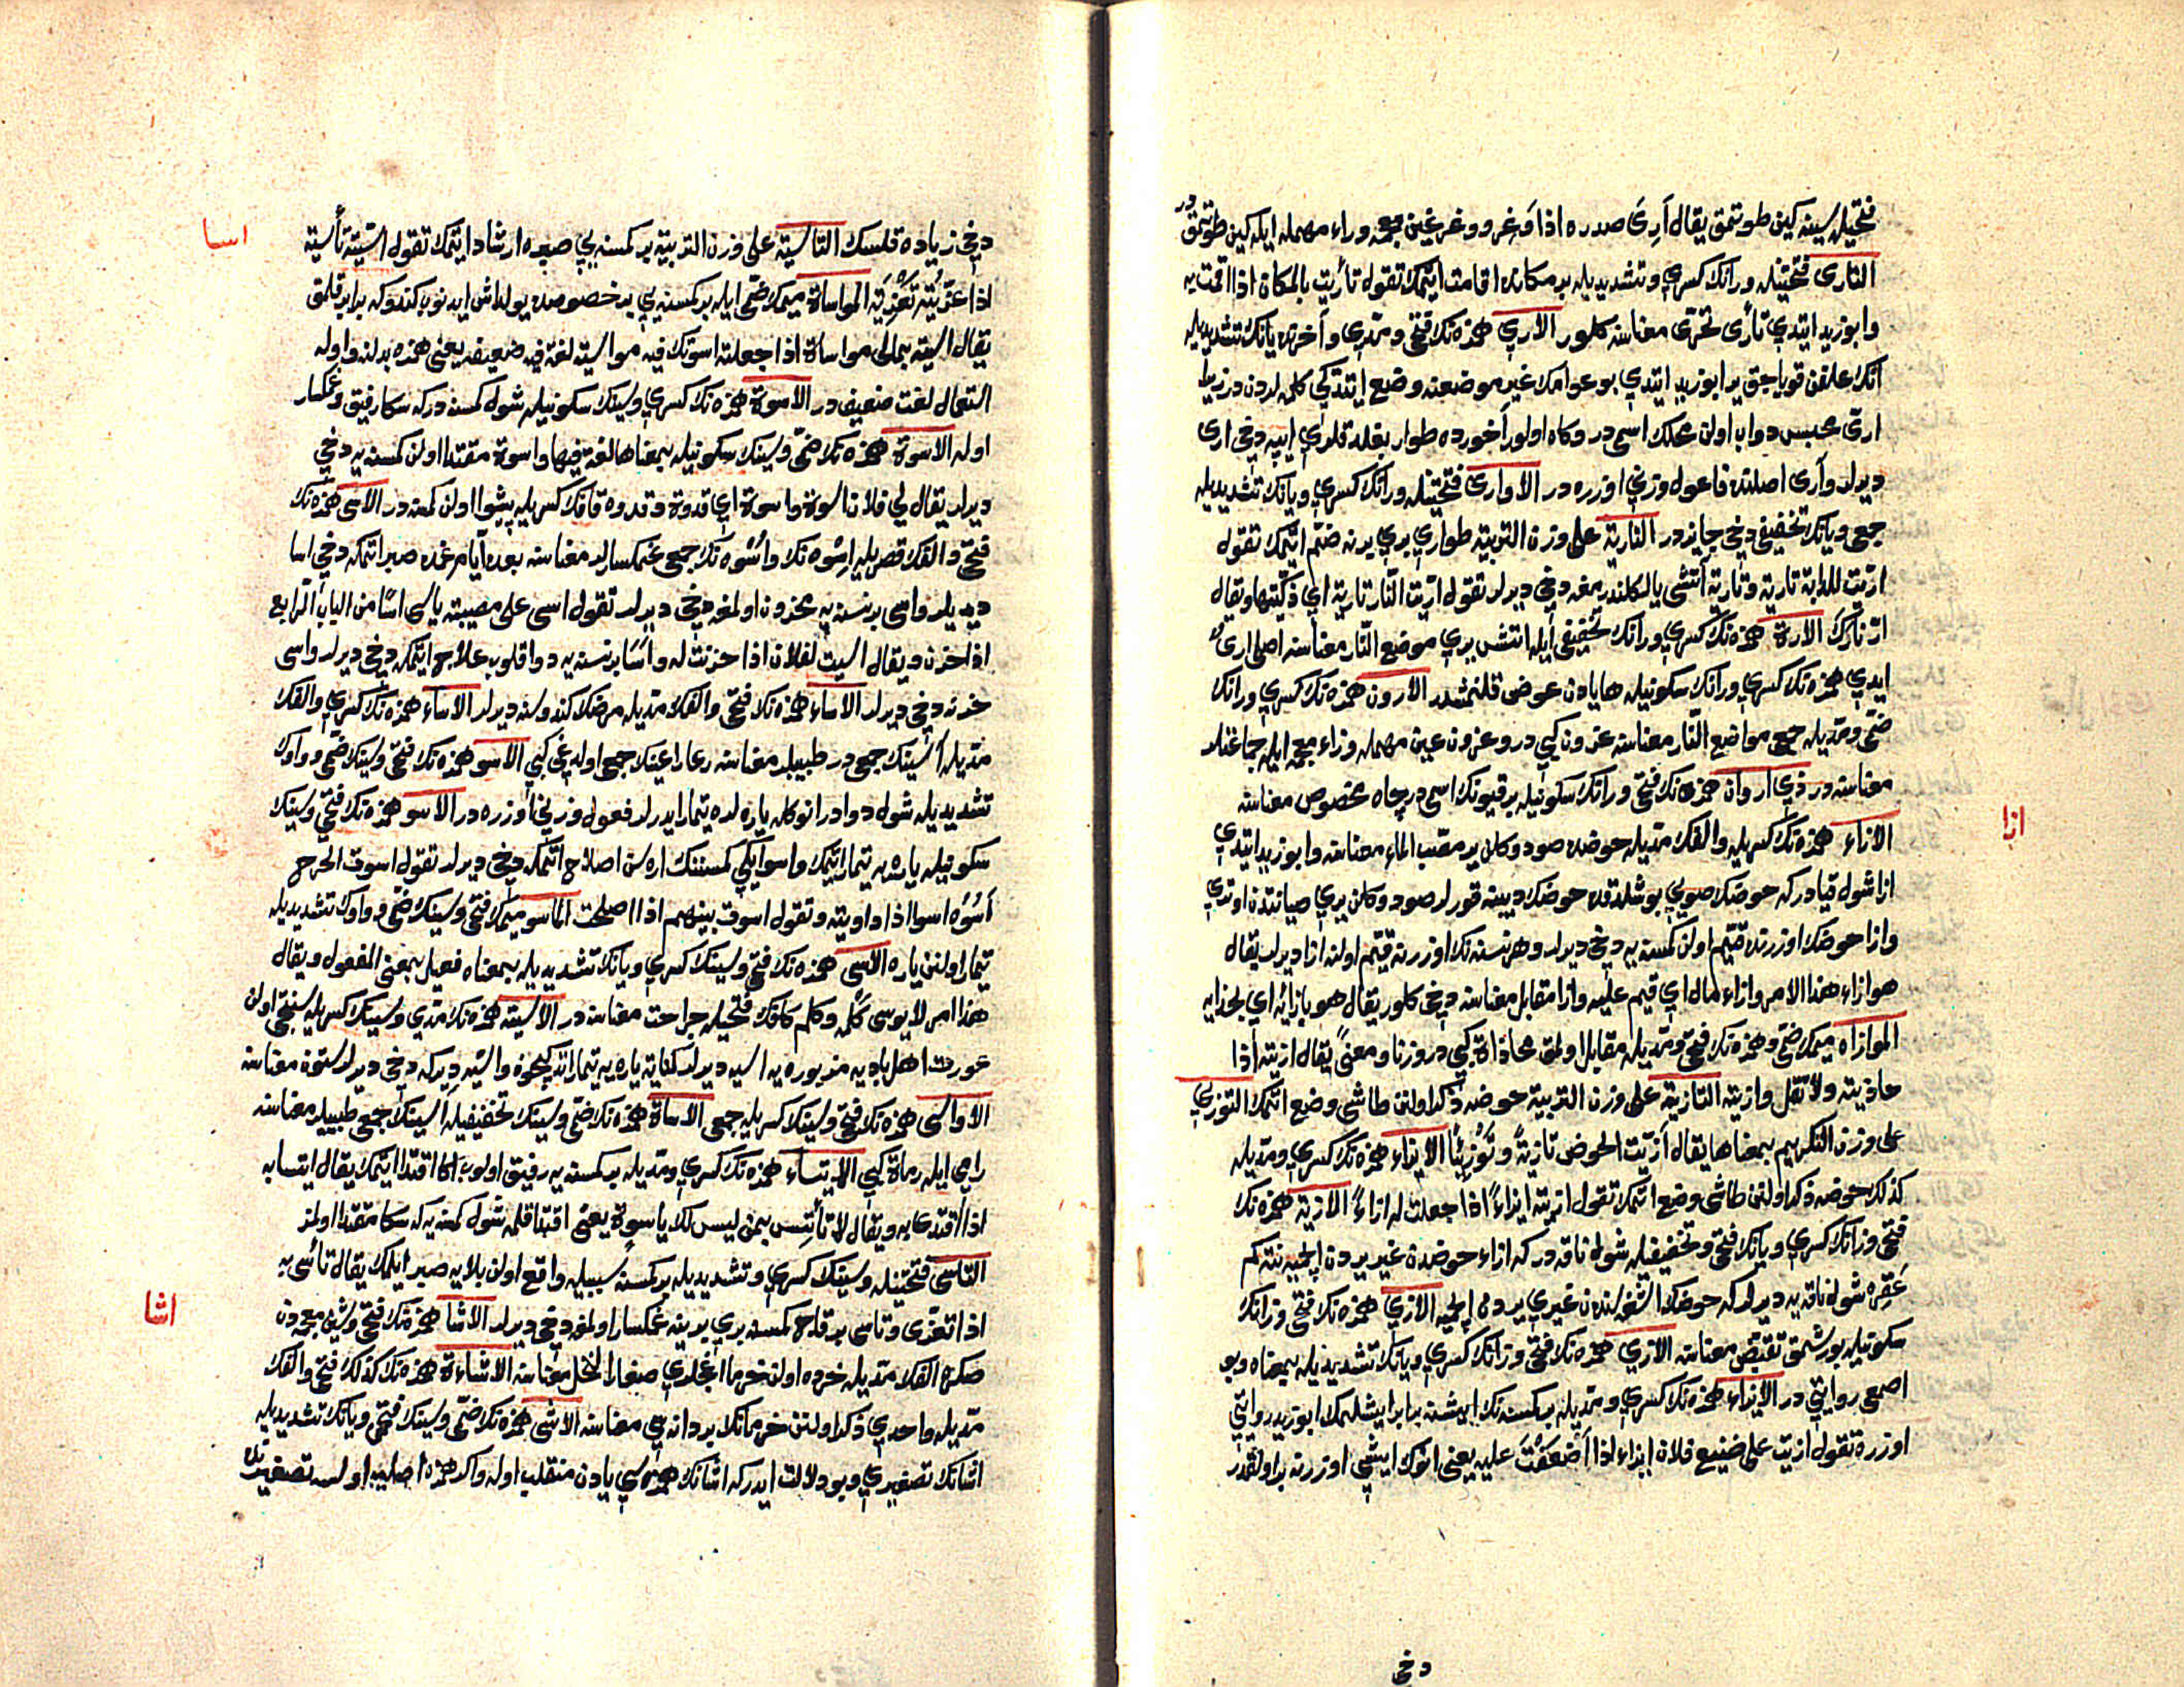 فتحيله سينه كين طوتمق يقال أرى صدره اذا وغر و وغر غين معجمه وراء مهمله ايله كين طوتمقدر
التأرى فتحتينله ورانك كسرى وتشديديله بر مكانده اقامت ايتمك تقول تأريت بالمكان اذا اقمت به
وابو زيد ايتدى تأرى تحرى معناسنه كلور الآرى همزه نك فتحى ومدى وآخرنده يانك تشديديله
آنك علفن قوياجق ير ابو زيد ايتدى بو عوامك غير موضعنه وضع ايتدكى كلمه لردندر زيرا
آرى محبس دواب اولن محلك اسميدر وكاه اولور آخورده طوار بغلدقلرى ايپه دخى آرى
ديرلر وآرى اصلنده فاعول وزنى اوزره در الأوارى فتحتينله ورانك كسرى ويانك تشديديله
جمعى ويانك تخفيفى دخى جايزدر التأرية على وزن التربية طوارى برى برنه ضم ايتمك تقول
ارّيت للدابة تارية وتارية آتشى يالكلندرمغه دخى ديرلر تقول ارّيت النار تارية اى ذكّيتها ويقال
ارّ نارك الارة همزه نك كسرى ورانك تخفيفى ايله آتش يرى موضع النار معناسنه اصلى ارى
ايدى همزه نك كسرى ورانك سكونيله ها يادن عوض قلنمشدر الارون همزه نك كسرى ورانك
ضمى ومديله جمعى مواضع النار معناسنه عزون كبى در وعزون عين مهمله وزاء معجمه ايله جماعتلر
معناسنه در ذى اروان همزه نك فتحى ورانك سكونيله بر قيونك اسميدر چاه مخصوص معناسنه
ازا
الازاء همزه نك كسريله والفك مديله حوضده صو دوكلن ير مصب الماء معناسنه وابو زيد ايتدى
ازا شول قيادر كه حوضك صويى بوشلدقده حوضك ديبنه قورلر صو دوكلن يرى صيانتدن اوترى
وازا حوضك اوزرنده قيم اولن كمسنه يه دخى ديرلر وهر نسنه نك اوزرنه قيم اولنه ازا ديرلر يقال
هو ازاء هذا الامر وازاء مال اى قيم عليه وازا مقابل معناسنه دخى كلور يقال هو بازائه اى بحذايه
الموازاه ميمك ضمى وهمزه نك فتحى ومديله مقابل اولمق محاذاة كبى در وزنا ومعنى يقال ازيته اذا
حاذيته ولا تقل وازيته التازية على وزن التربية حوضه ذكر اولنن طاشى وضع ايتمك التوزى
على وزن التكريم بمعناها يقال أزّيت الحوض تازية وتوزيئا الايزاء همزه نك كسرى ومديله
كذلك حوضه ذكر اولنن طاشى وضع ايتمك تقول آزيته ايزاء اذا جعلت له ازاء الازية همزه نك
فتحى وزانك كسرى ويانك فتحى وتخفيفيله شول ناقه در كه ازاء حوضدن غيرى يردن ايچميه نته كم
عقره شول ناقه يه ديرلر كه حوضك اشغه لندن غيرى يردن ايچميه الازى همزه نك فتحى وزانك
سكونيله بورشمق تقبض معناسنه الازى همزه نك فتحى وزانك كسرى ويانك تشديديله بمعناه وبو
اصمعى روايتى در الايزاء همزه نك كسرى ومديله بر كمسنه نك ايشنه برابر ايشلمك ابو زيد روايتى
اوزره تقول ازيت على ضنيع فلان ايزاء اذا اضعفت عليه يعنى انوك ايشى اوزرنه بر اولقدر
دخى
اسا
دخى زياده قلسك التأسية على وزن التربية بر كمسنه يى صبره ارشاد ايتمك تقول اسّيته تأسية
اذا عزّيته تعزية المواساة ميمك ضمى ايله بر كمسنه يى بر خصوصده يولداش ايدنوب كندوكه برابر قلمق
يقال آسيته بمالى مواساة اذا جعلته اسوتك فيه مواسيته لغة فيه ضعيفه يعنى همزه بدلنه واوله
استعمال لغت ضعيفدر الاسوة همزه نك كسرى وسينك سكونيله شول كمسنه در كه سكا رفيق وغمكسار
اوله الاسوة همزه نك ضمى وسينك سكونيله بمعناها لغة فيها واسوة مقتدا اولن كمسنه يه دخى
ديرلر يقال لى فلان اسوة واسوة اى قدوة وقدوه قافك كسريله پيشوا اولن كمسنه در الاسى همزه نك
فتحى والفك قصريله اسوه نك واسوه نك جمعى غمكسارلر معناسنه بوده آيا مرغده صبر ايتمكه دخى اسا
ديديلر واسى بر نسنه يه محزون اولمغه دخى ديرلر تقول اسى على مصيبته ياسى اسا من الباب الرابع
اذا حزن ويقال اسيت لفلان اذا حزنت له واسا بر نسنه يه دوا قلوب علاج ايتمكه دخى ديرلر واسى
حزنه دخى ديرلر الاساء همزه نك فتحى والفك مديله مرضك كندوسنه ديرلر الاساء همزه نك كسرى والفك
مديله آسينك جمعى در طبيبلر معناسنه رعا راعينك جمعى اولديغى كبى الاسو همزه نك فتحى وسينك ضمى وواوك
تشديديله شول دوادر انوكله ياره لره تيمار ايدرلر فعول وزنى اوزره در الاسو همزه نك فتحى وسينك
سكونيله ياره يه تيمار ايتمك واسو ايكى كمسنه نك اره سن اصلاح ايتمكه دخى ديرلر تقول اسوت الجرح
آسوه اسوا اذا داويته وتقول اسوت بينهم اذا اصلحت الماسو ميمك فتحى وسينك ضمى وواوك تشديديله
تيمار اولنن ياره الاسى همزه نك فتحى وسينك كسرى ويانك تشديديله بمعناه فعيل بمعنى المفعول ويقال
هذا امر لا يوسى كلمه وكلم كافك فتحيله جراحت معناسنه در الآسيه همزه نك مدى وسينك كسريله سنتجى اولن
عورت اهل باديه مزبوره يه آسيه ديرلر كنايه ياره يه تيمار ايتدكيچون وآسيه ديركه دخى ديرلر ستون معناسنه
الاواسى همزه نك فتحى وسينك كسريله جمعى الاساة همزه نك ضمى وسينك تخفيفيله آسينك جمعى طبيبلر معناسنه
رامى ايله رماة كبى الايتساء همزه نك كسرى ومديله بر كمسنه يه رفيق اولوب اكا اقتدا ايتمك يقال ايتسا به
اذا اقتدى به ويقال لا تأتس بمن ليس لك باسوة يعنى اقتدا قلمه شول كمسنه يه كه سكا مقتدا اولمز
التأسى فتحتينله وسينك كسرى وتشديديله بر كمسنه سببيله واقع اولن بلايه صبر ايلمك يقال تأسى به
اشا
اذا تعزى وتاسى بر قاچ كمسنه برى برينه غمكسار اولمغه دخى ديرلر الاشا همزه نك فتحى وشين معجمه دن
صكره الفك مديله خرده اولن خرما اغجلرى صغار النخل معناسنه الاشاءة همزه نك كذلك فتحى والفك
مديله واحدى ذكر اولنن خرمانك بر دانه سى معناسنه الاشى همزه نك ضمى وشينك فتحى ويانك تشديديله
اشانك تصغيرى وبو دلالت ايدر كه اشانك همزه سى يادن منقلب اوله واكر همزه اصليه اولسه تصغيرنده